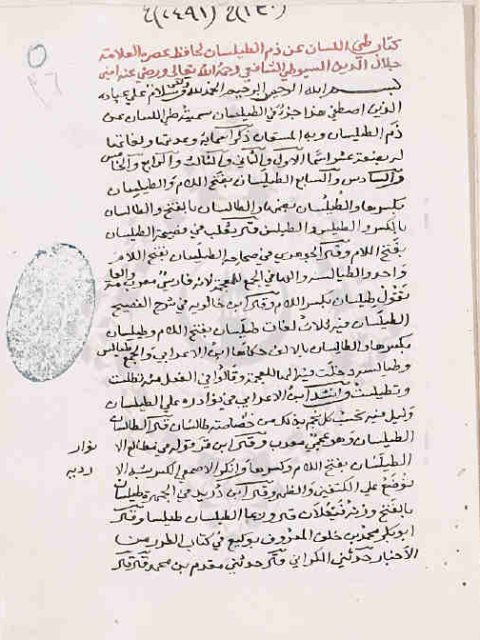 (١٣٠) ع (٢٤٩١) ع
٣٦
كتاب طي اللسان عن ذم الطيلسان لحافظ عصره العلامة
جلال الدين السيوطي الشافعي رحمه الله تعالى ورضي عنه امين
بسم الله الرحمن الرحيم الحمد لله وسلام على عباده
الذين اصطفى هذا جزء في الطيلسان سميته طي اللسان عن
ذم الطيلسان وبه المستعان ذكر اسمائه وعدتها ولغاتها
له بضعة عشر اسما الاول والثاني والثالث والرابع والخامس
والسادس والسابع الطيلسان بفتح اللام والطيلسان
بكسرها والطيلسان بضمها والطالسان بالفتح والطالسان
بالكسر والطيلس والطيلس قال ثعلب في فصيحه الطيلسان
بفتح اللام وقال الجوهري في صحاحه الطيلسان بفتح اللام
واحد الطيالسه والهاء في الجمع للعجمة لانه فارسي معرب والعامة
تقول طيلسان بكسر اللام وقال ابن خالويه في شرح الفصيح
الطيلسان فيه ثلاث لغات طيلسان بفتح اللام وطيلسان
بكسرها والطالسان بالالف حكاها ابن الاعرابي والجمع طيالس
وطيالسه دخلت فيه الهاء للعجمة وقالوا في الفعل منه تطلست
وتطيلست وانشد ابن الاعرابي في نوادره على الطيلسان
وليل فيه تحسب كل نجم بدا لك من خصاصة طالسان قال الطالسان
الطيلسان وهو عجمي معرب وقال ابن قرقول في مطالع الا
نوار
الطيلسان بفتح اللام وكسرها وانكر الاصمعي الكسر شبه الا
ردية
توضع على الكتفين والظهر وقال ابن دريد في الجمهرة طيلسان
بالفتح وزنه فيعلان قال وربما الطيلسان طيلسا وقال
ابو بكر محمد بن خلف المعروف بوكيع في كتاب الطرر من
الاخبار حدثني الكراني قال حدثني مقدم بن محمد قال قال